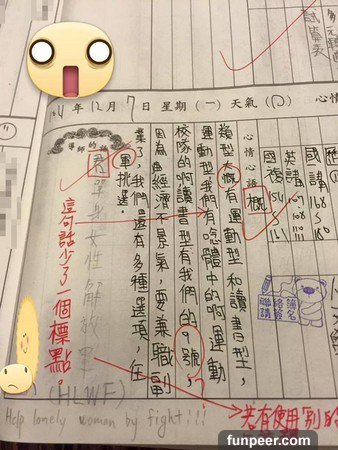 104 年 12 月 7 日 星期 (一) 天氣 ( ) 心情
國講 168
英講 107 108 111
國複 154 161
心情小語
概
類型大概有運動型和讀書型,
運動型我們有唸體中的啊運動
校隊的啊讀書型有我們的9號,
因為經濟不景氣,要兼職副
業了我們還有多種選項,任
軍挑選。
導師的話
君
單身女性解放軍
(HLWF)
這句話少了一個標點。
Help lonely woman by fight!!!
聯絡簿簽名
funpeer.com